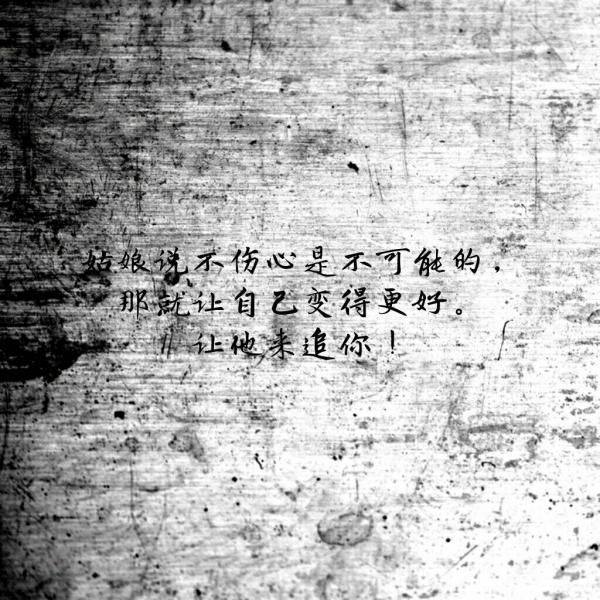 姑娘说不伤心是不可能的，
那就让自己变得更好。
让他来追你！